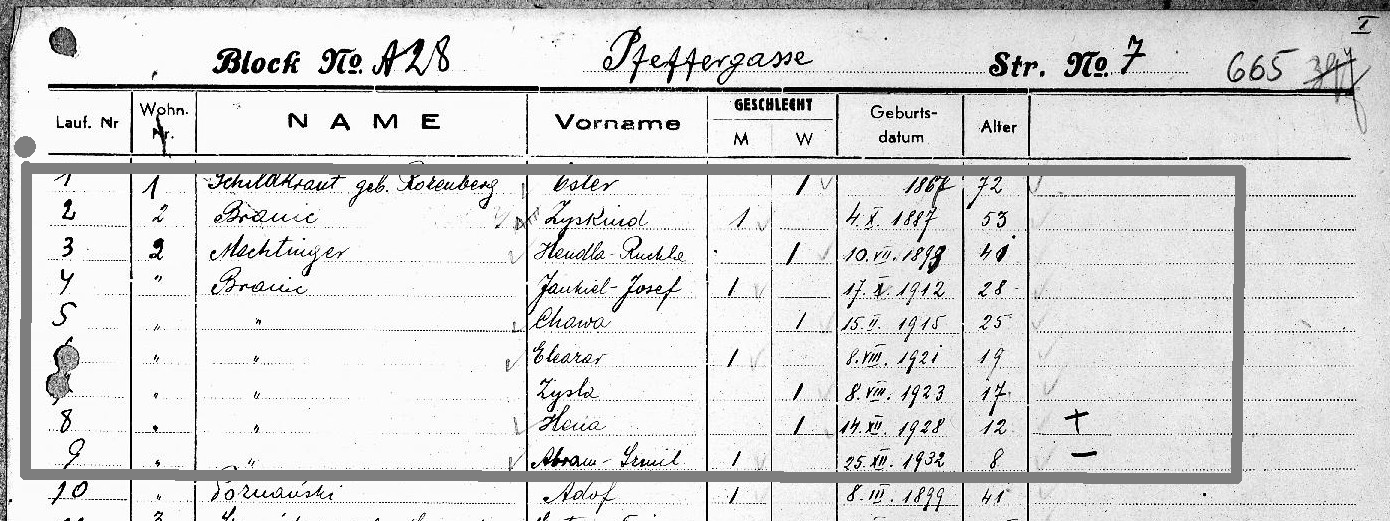 I
Block No. A28 Pfeffergasse Str. No. 7 665
Lauf. Nr Wohn. Nr. NAME Vorname GESCHLECHT M W Geburts- datum Alter
1 1 Schildkraut geb. Rozenberg Ester 1 1867 72
2 2 Branic Zyskind 1 4.X. 1887 53
3 2 Machtinger Hendla-Ruchla 1 10.VII. 1899 41
4 " Branic Jankiel-Josef 1 17.X. 1912 28
5 " " Chawa 1 15.II. 1915 25
" " Eleazar 1 8.VIII. 1921 19
" " Zysla 1 8.VIII. 1923 17
8 " " Hena 1 14.XII. 1928 12 +
9 " " Abram-Izmil 1 25.XII. 1932 8 –
10 " Poznański Adof 1 8.III. 1899 41
3